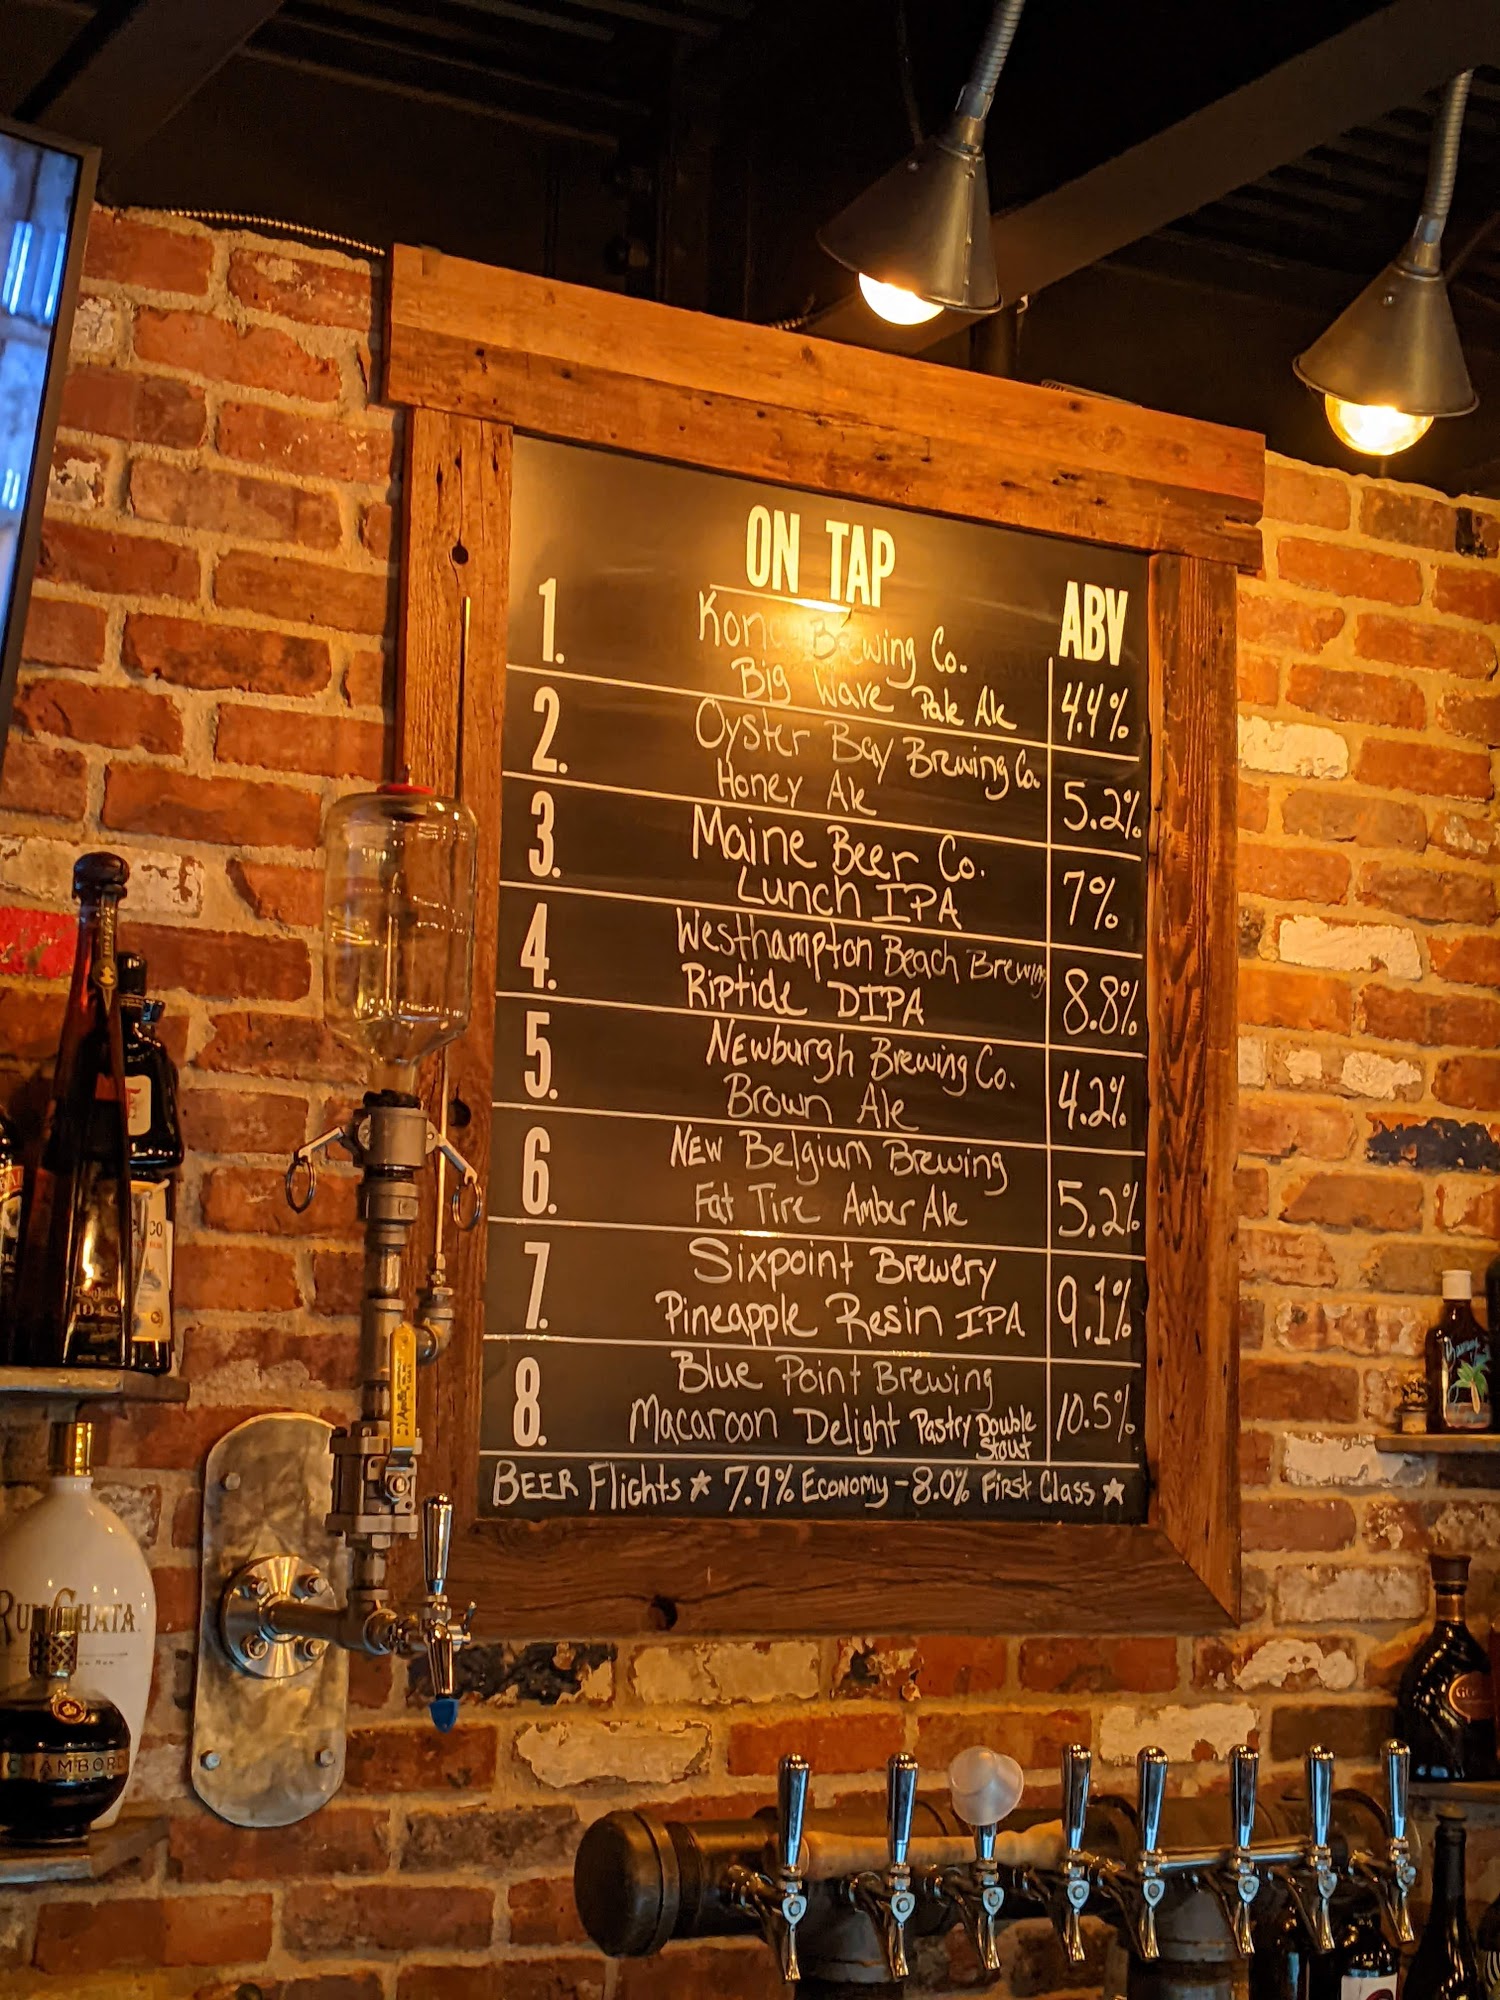 ON TAP
ABV
1.
Kona Brewing Co.
Big Wave Pale Ale
4.4%
2.
Oyster Bay Brewing Co.
Honey Ale
5.2%
3.
Maine Beer Co.
Lunch IPA
7%
4.
Westhampton Beach Brewing
Riptide DIPA
8.8%
5.
Newburgh Brewing Co.
Brown Ale
4.2%
6.
New Belgium Brewing
Fat Tire Amber Ale
5.2%
7.
Sixpoint Brewery
Pineapple Resin IPA
9.1%
8.
Blue Point Brewing
Macaroon Delight Pastry Double
Stout
10.5%
BEER Flights ★ 7.9% Economy - 8.0% First Class ★
Don Julio
1942
RUMCHATA
CHAMBORD